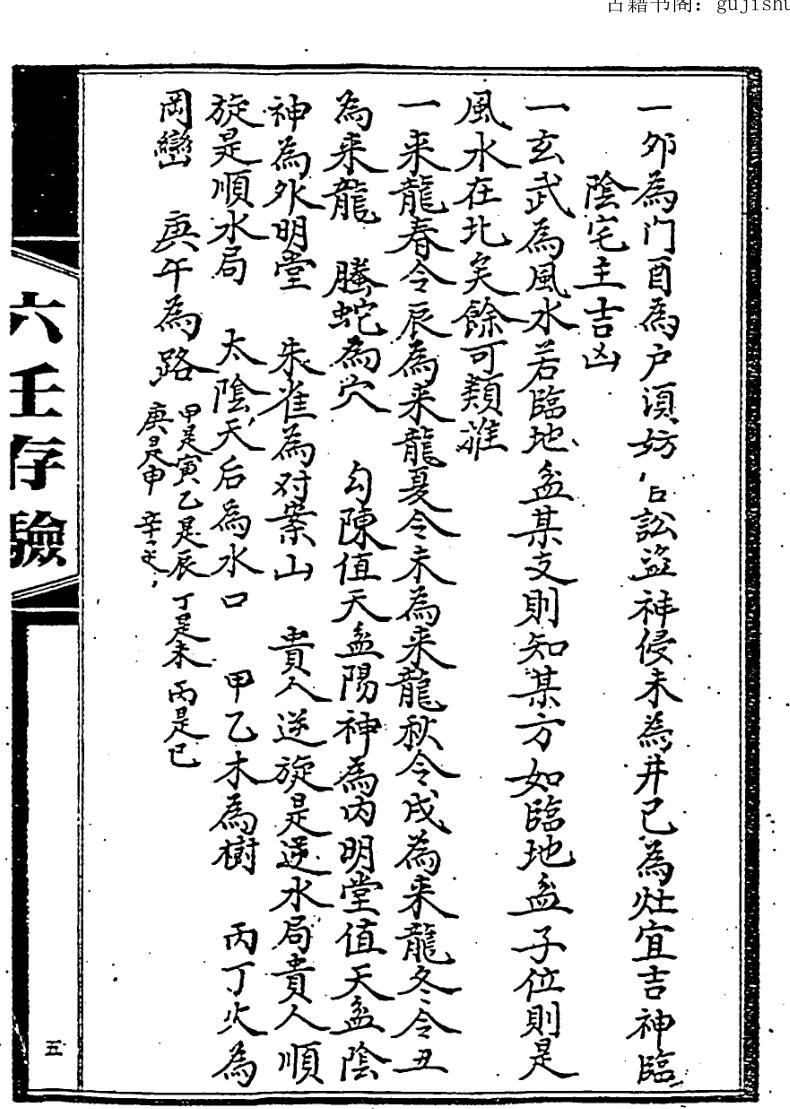 古籍书阁：gujishu
一卯為门酉為户須妨占訟盗神侵未為井巳為灶宜吉神臨
陰宅主吉凶
一玄武為風水若臨地盘某支則知某方如臨地盘子位則是
風水在北矣餘可類推
一来龍春令辰為来龍夏令未為来龍秋令戌為来龍冬令丑
為来龍　螣蛇為穴　勾陳值天盘陽神為内明堂值天盘陰
神為外明堂　朱雀為对案山　貴人逆旋是逆水局貴人順
旋是順水局　太陰天后為水口　甲乙木為樹　丙丁火為
岡巒　庚午為路　甲是寅乙是辰　丁是未　丙是巳
庚是申　辛
六壬存驗
五